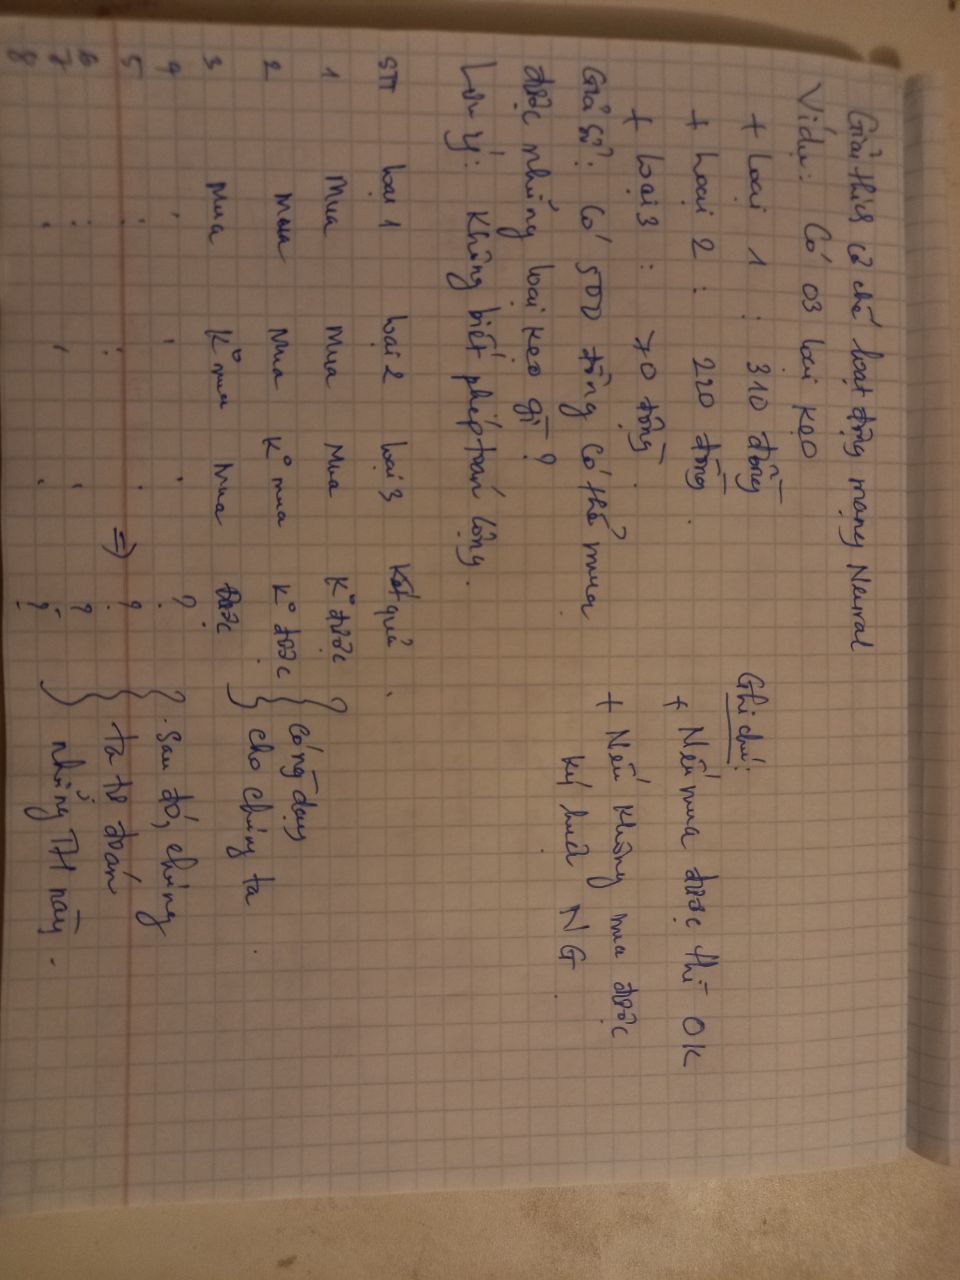 Giải thích cơ chế hoạt động mạng Neural
Ví dụ: Có 03 loại kẹo
+ Loại 1 : 310 đồng
+ Loại 2 : 220 đồng.
+ Loại 3 : 70 đồng.
Giả sử: Có 500 đồng có thể mua
được những loại kẹo gì?
Lưu ý: Không biết phép toán cộng.
Ghi chú:
+ Nếu mua được thì OK
+ Nếu không mua được
ký hiệu NG.
STT Loại 1 Loại 2 Loại 3 Kết quả.
1 Mua Mua Mua K° được
2 Mua Mua K° mua K° được
3 Mua K° mua Mua Được
Có người dạy
cho chúng ta.
4 ?
5 ⇒ ?
6 ?
7
8 ?
Sau đó, chúng
ta tự đoán
những TH này.